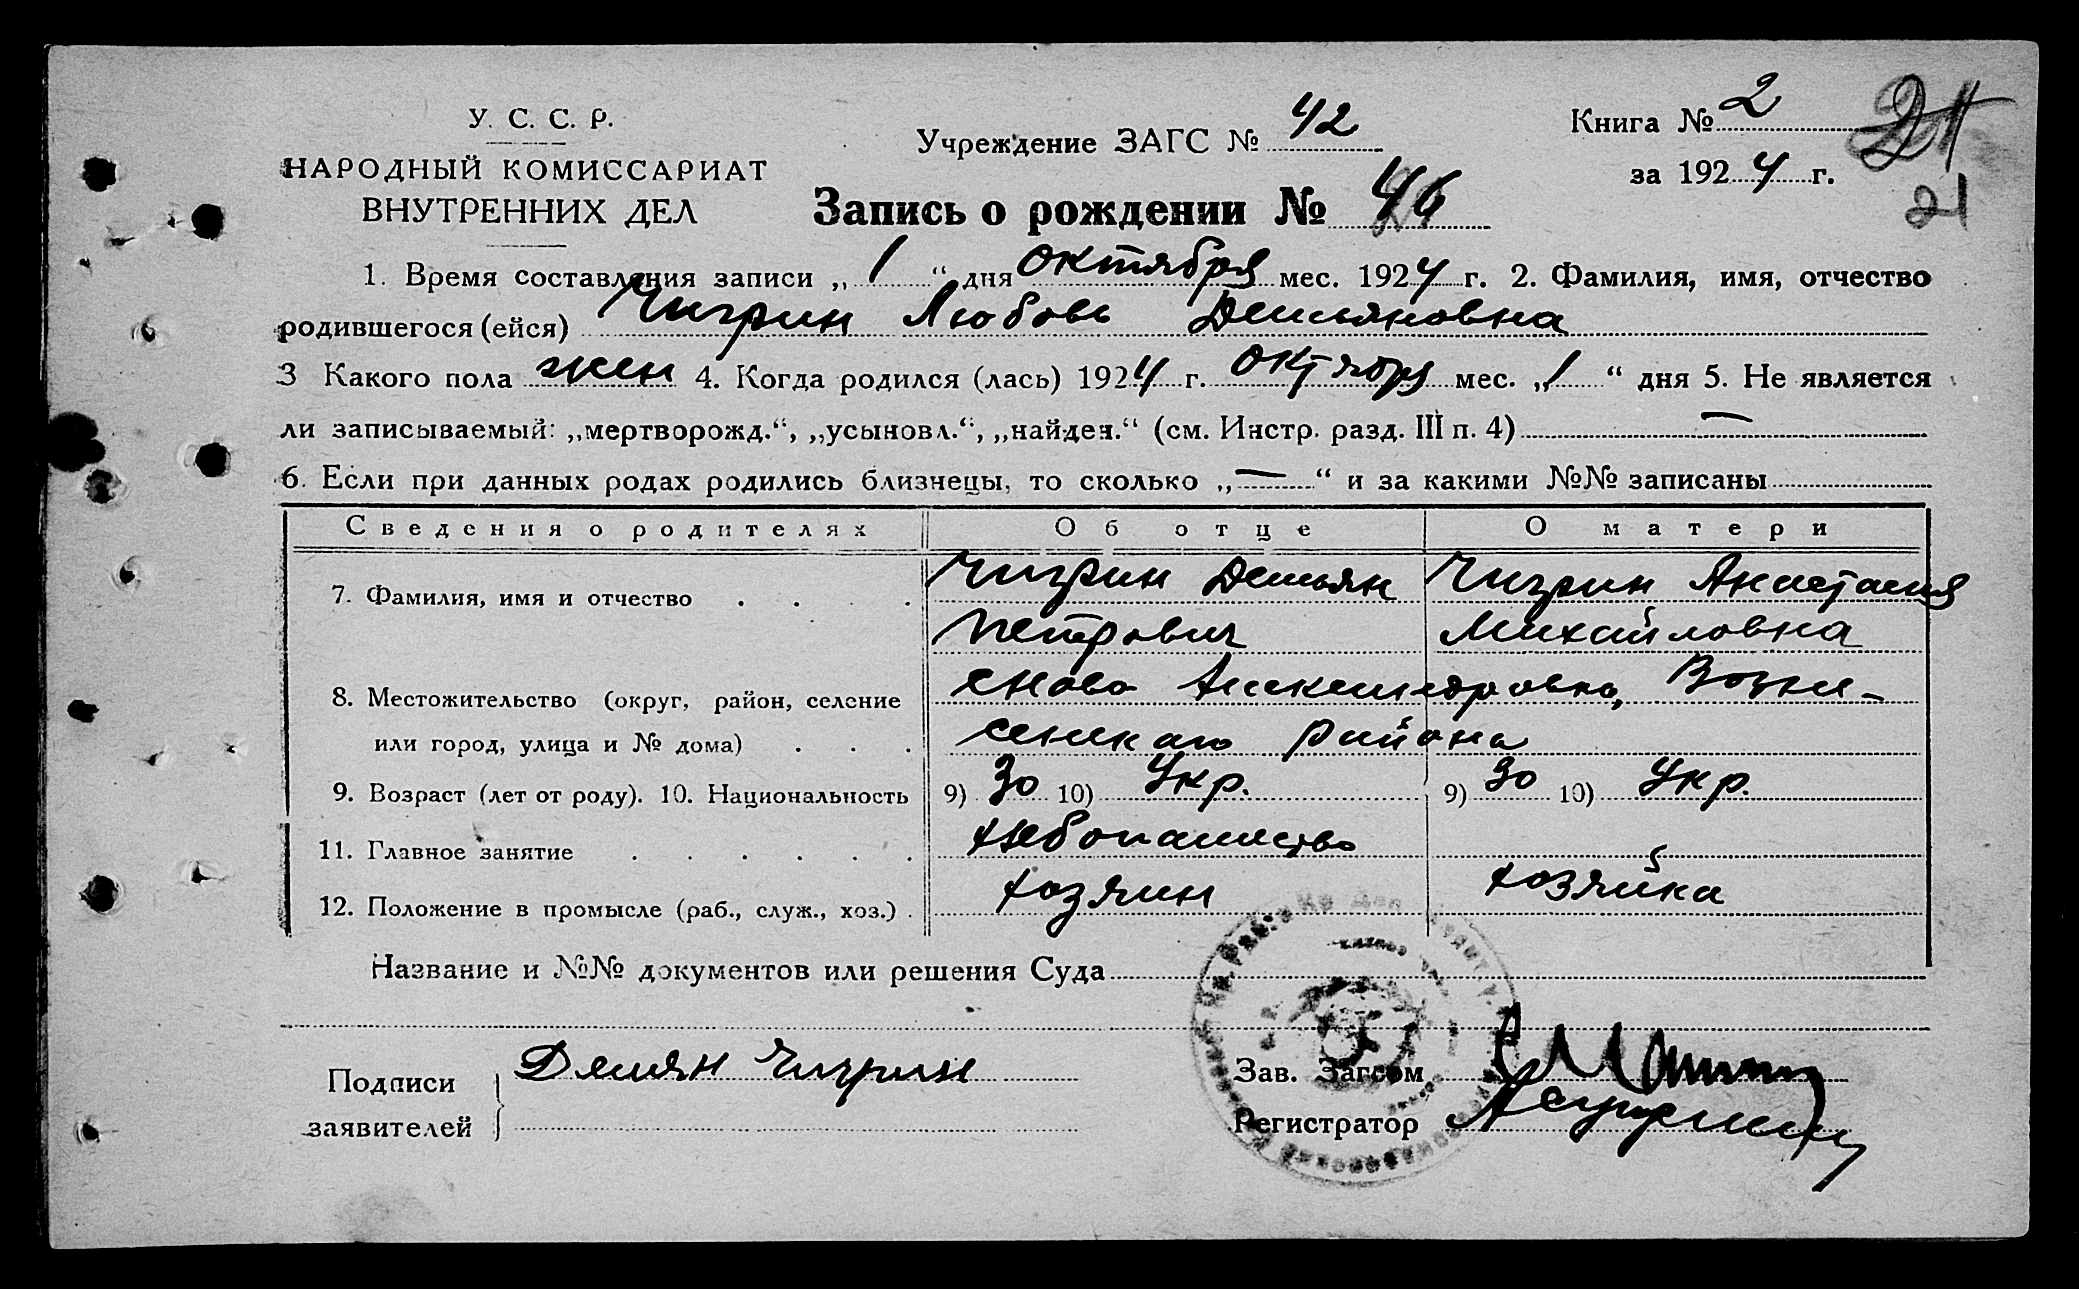 У. С. С. Р.
НАРОДНЫЙ КОМИССАРИАТ
ВНУТРЕННИХ ДЕЛ
Учреждение ЗАГС № 42
Книга № 2
за 1924 г.
21
Запись о рождении № 46
1. Время составления записи „1“ дня октября мес. 1924 г. 2. Фамилия, имя, отчество
родившегося (ейся) Чигрин Любовь Демьяновна
3 Какого пола жен 4. Когда родился (лась) 1924 г. октября мес. „1“ дня 5. Не является
ли записываемый: „мертворожд.“, „усыновл.“, „найден.“ (см. Инстр. разд. III п. 4) —
6. Если при данных родах родились близнецы, то сколько „—“ и за какими №№ записаны
Сведения о родителях Об отце О матери
7. Фамилия, имя и отчество Чигрин Демьян Чигрин Анастасия
Петрович Михайловна
8. Местожительство (округ, район, селение Ново Александровка, Возне-
или город, улица и № дома) сенскаго района
9. Возраст (лет от роду). 10. Национальность 9) 30 10) Укр. 9) 30 10) Укр.
11. Главное занятие хлебопашество
12. Положение в промысле (раб., служ., хоз.) хозяин хозяйка
Название и №№ документов или решения Суда
Подписи Демян Чигрин
заявителей
Зав. Загсом
Регистратор